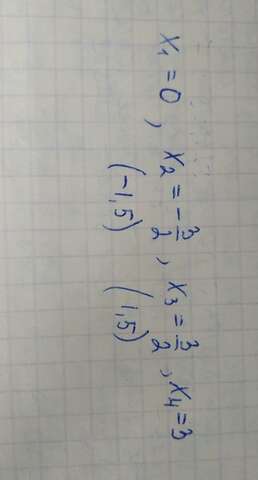 x₁ = 0, x₂ = -3/2, x₃ = 3/2, x₄ = 3
(-1,5) (1,5)